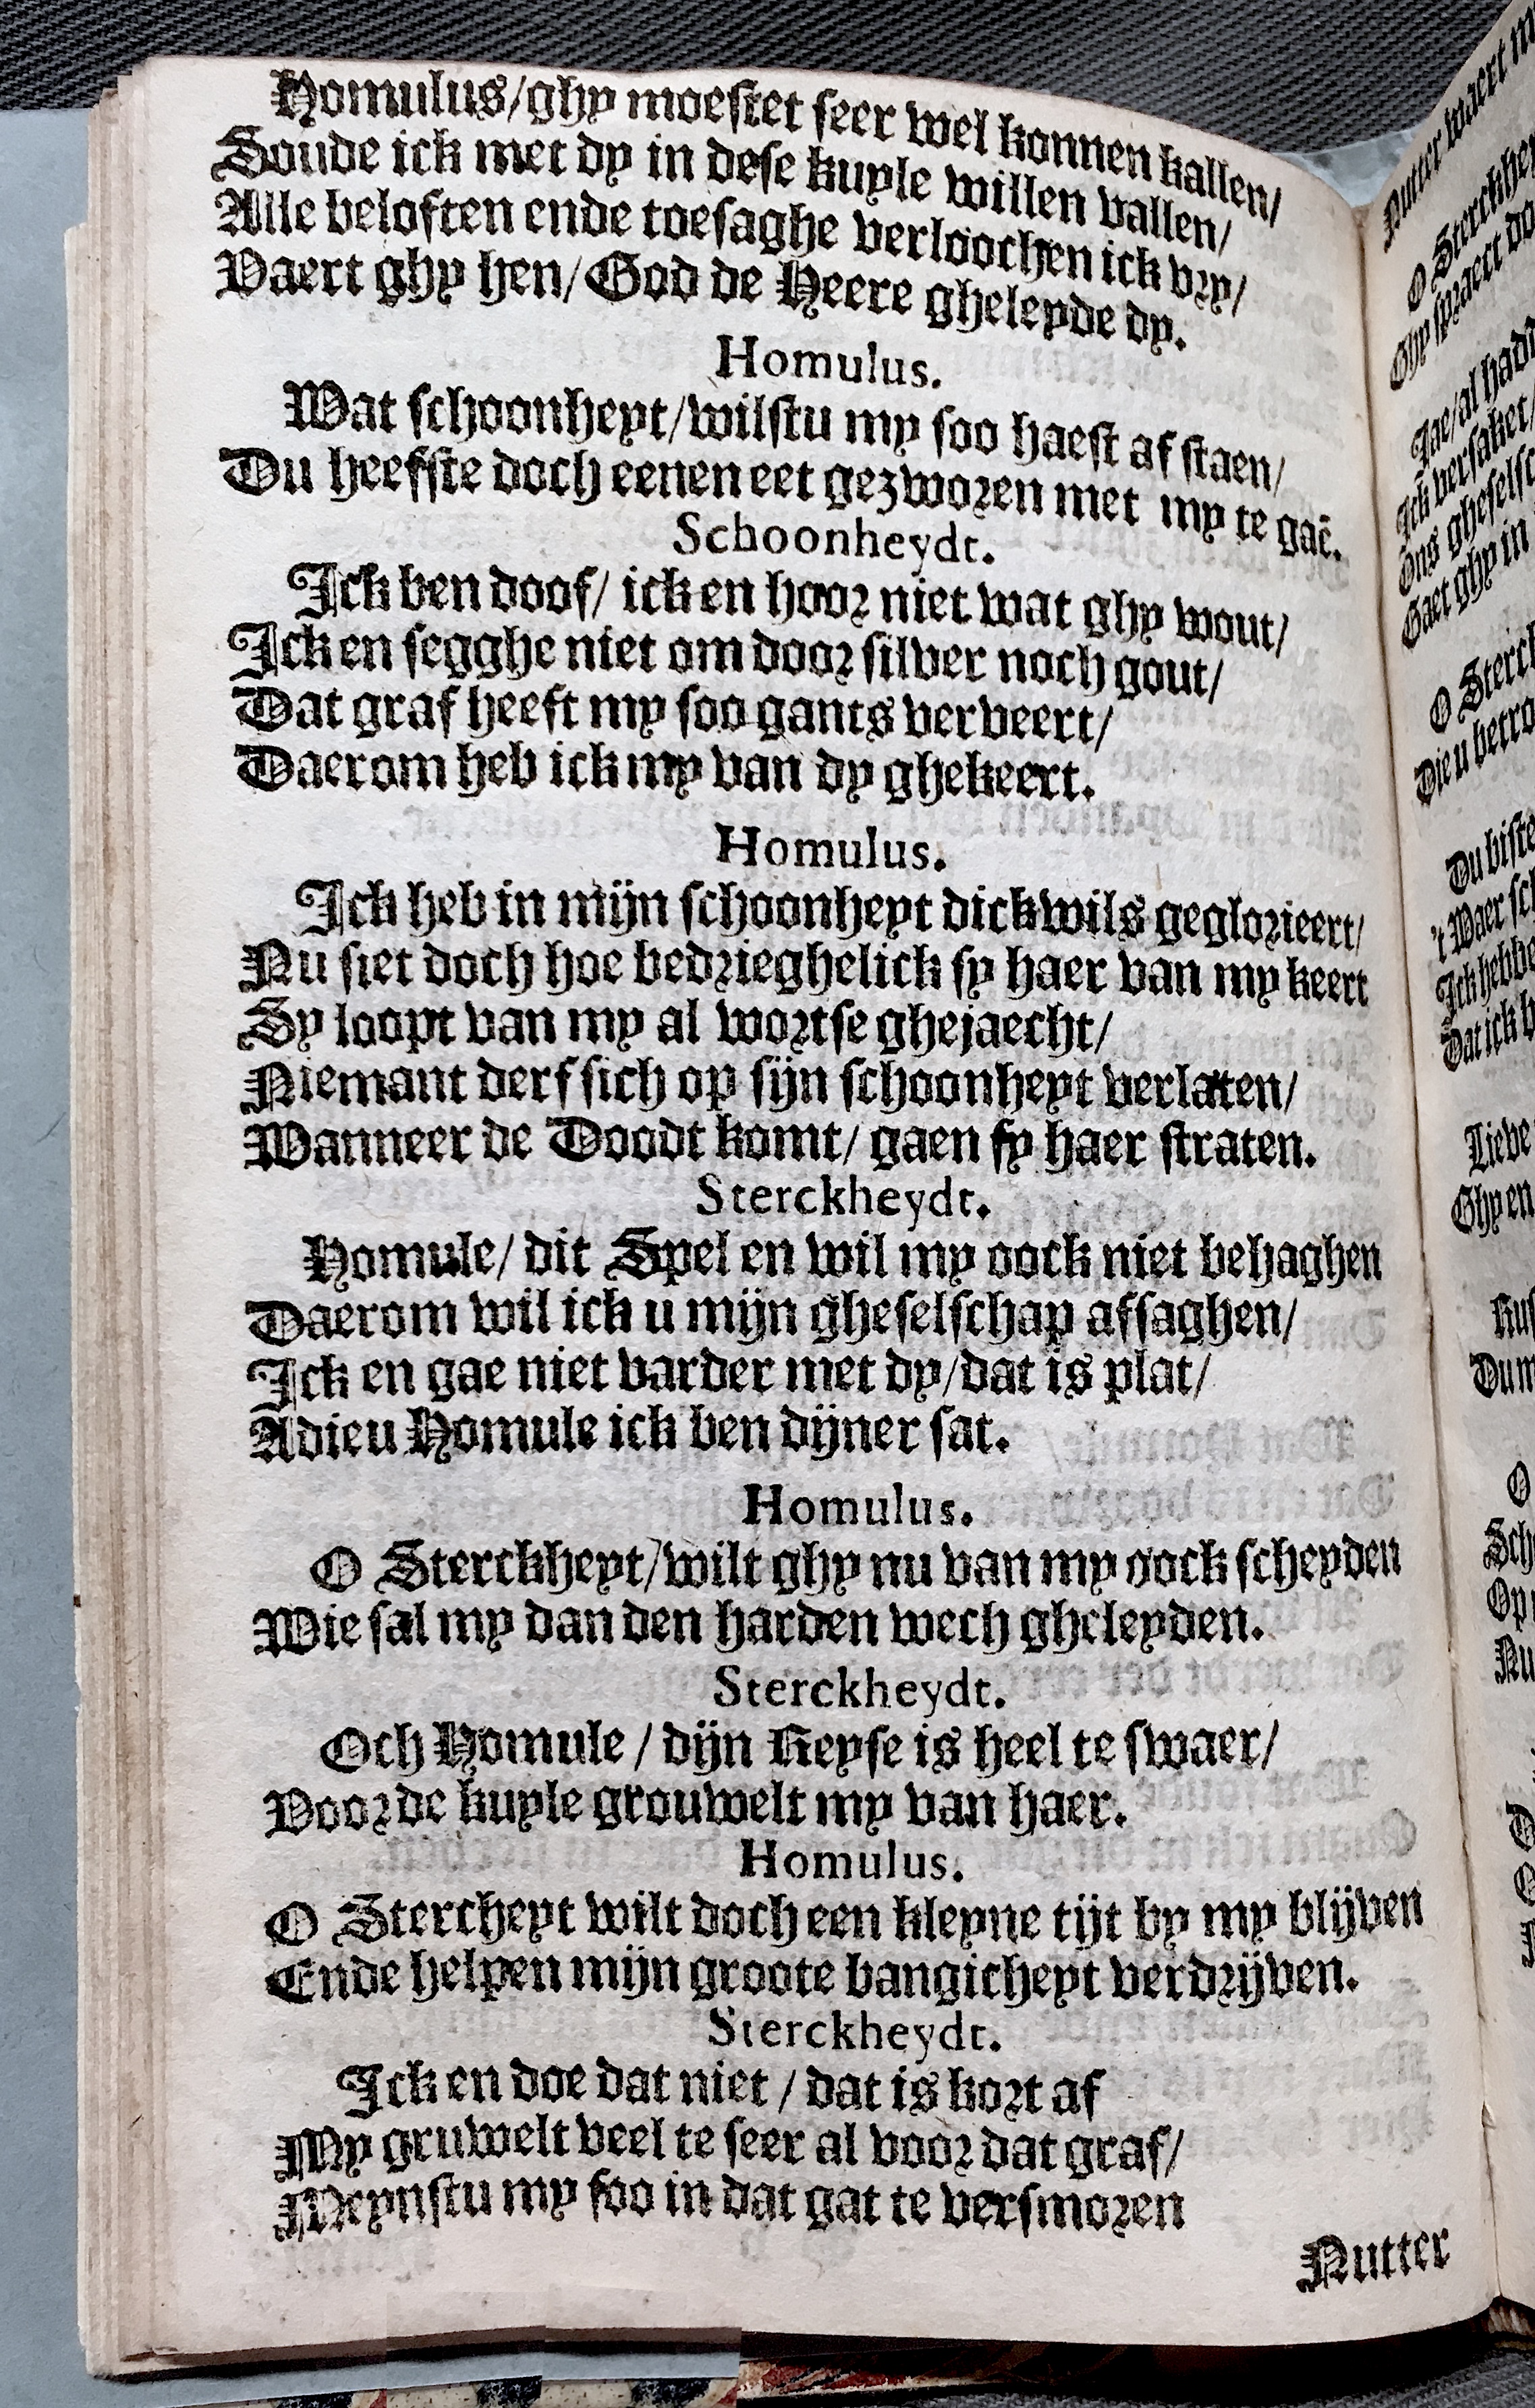 Homulus/ghy moestet seer wel konnen kallen/
Soude ick met dy in dese kuyle willen vallen/
Alle beloften ende toesaghe verloochen ick vry/
Vaert ghy hen/God de Heere gheleyde dy.
Homulus.
Wat schoonheyt/wilstu my soo haest af staen/
Du heefste doch eenen eet gezworen met my te gaē.
Schoonheydt.
Ick ben doof/ ick en hoor niet wat ghy wout/
Ick en segghe niet om door silver noch gout/
Dat graf heeft my soo gants verveert/
Daerom heb ick my van dy ghekeert.
Homulus.
Ick heb in mijn schoonheyt dickwils geglorieert/
Nu siet doch hoe bedrieghelick sy haer van my keert
Sy loopt van my al wortse ghejaecht/
Niemant derf sich op sijn schoonheyt verlaten/
Wanneer de Doodt komt/ gaen sy haer straten.
Sterckheydt.
Homule/ dit Spel en wil my oock niet behaghen
Daerom wil ick u mijn gheselschap afsaghen/
Ick en gae niet varder met dy/dat is plat/
Adieu Homule ick ben dijner sat.
Homulus.
O Sterckheyt/wilt ghy nu van my oock scheyden
Wie sal my dan den harden wech gheleyden.
Sterckheydt.
Och Homule / dijn Reyse is heel te swaer/
Voor de kuyle grouwelt my van haer.
Homulus.
O Stercheyt wilt doch een kleyne tijt by my blijven
Ende helpen mijn groote bangicheyt verdrijven.
Sterckheydt.
Ick en doe dat niet / dat is kort af
My gruwelt veel te seer al voor dat graf/
Meynstu my soo in dat gat te versmoren
Nutter
Nutter waert
O Sterckhey
Ghy spraect
Jae/al
Ick versaket/
Ons ghesels
Gaet ghy in
O Sterck
Die u betro
Du biste
't Waer
Ick hebbe
Dat ick
Lieve
Ghy en
Du
O
Sch
Op
Nu